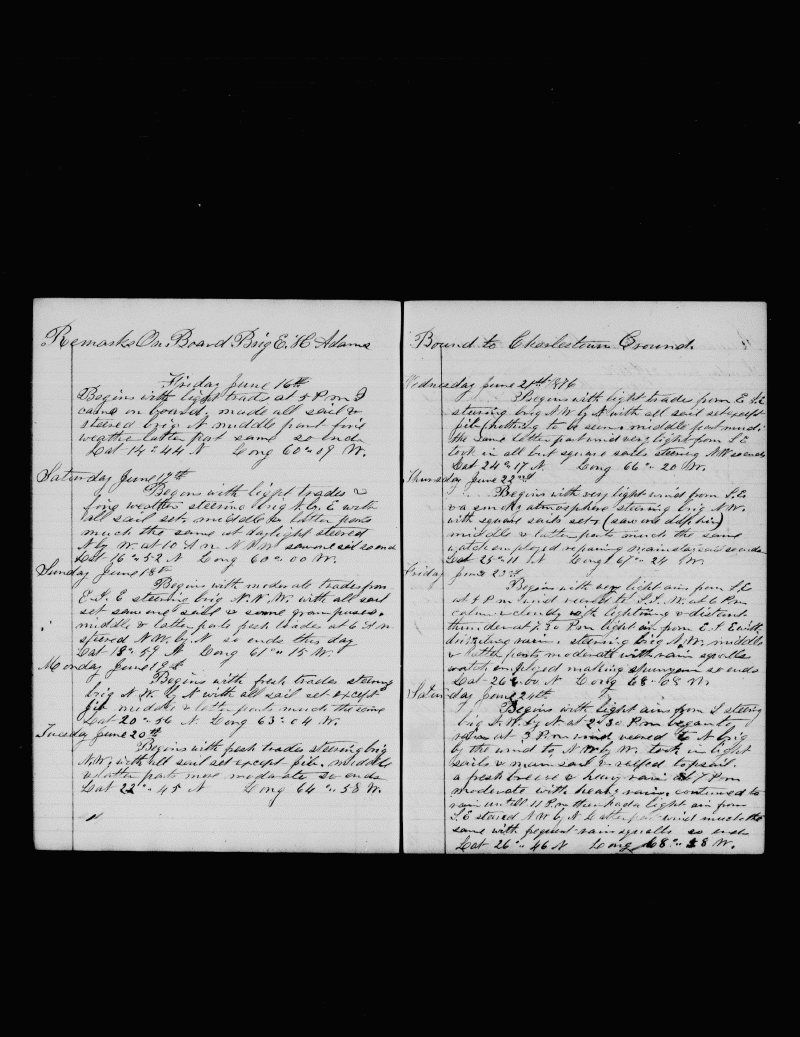 Remarks On Board Brig E. H. Adams
Friday June 16th
Begins with light trads at 5 P m I
came on board, made all sail &
steered brig N middle part fine
weathe latter part same so ends
Lat 14° 44 N Long 60° 19 W.
Saturday June 17th
Begins with light trades &
fine weather steering brig N. by E with
all sail set, middle & latter parts
much the same at daylight steered
N by W. at 10 A m N N W saw one sail so ends
Lat 16° 52 N Long 60° 00 W.
Sunday June 18th
Begins with moderate trades from
E. S. E steering brig N. N. W. with all sail
set saw one sail & some grampuses.
middle & latter parts fresh trades at 6 A m
steered N W. by N. so ends this day
Lat 18° 59 N Long 61° 15 W.
Monday June 19th
Begins with fresh trades steering
brig N. W. by N with all sail set except
jib middle & latter parts much the same
Lat 20° 56 N Long 63° 04 W.
Tuesday June 20th
Begins with fresh trades steering brig
N. W. with all sail set except jib. middle
& latter parts more moderate so ends
Lat 22° 45 N Long 64° 58 W.
Bound to Charlestown Ground.
Wednesday June 21st 1876
Begins with light trades from E S.E
steering brig N W by N with all sail set except
jib (nothing to be seen) middle part much
the same latter part wind very light from S. E
took in all but square sails steering N W so ends
Lat 24° 17 N. Long 66° 20 W.
Thursday June 22nd
Begins with very light wind from S. E
& a smoky atmosphere steering brig N. W.
with square sails set, (saw one dolphin)
middle & latter parts much the same
watch employed repairing mainstaysail so ends
Lat 25° 11 N Long 67° 24 W.
Friday June 23rd
Begins with very light airs from S. E
at 4 P m wind veered to S. W. at 6 P m
calm & cloudy with lightning & distant
thunder at 7.30 P m light air from E. S E with
drizzling rain. steering brig N. W. middle
& latter parts moderate with rain squalls
watch employed making spunyarn so ends
Lat 26° 00 N Long 68° 08 W.
Saturday June 24th
Begins with light airs from S steering
brig N. W. by N at 2.30 P m began to
rain at 3 P m wind veered to N brig
by the wind to N W by W. took in light
sails & main sail & reefed topsail.
a fresh breeze & heavy rain at 7 P m
moderate with heavy rain, continued to
rain untill 11 P m then had a light air from
S. E steered N W by N Latter part wind much the
same with frequent rain squalls so ends
Lat 26° 46 N Long 68° 58 W.